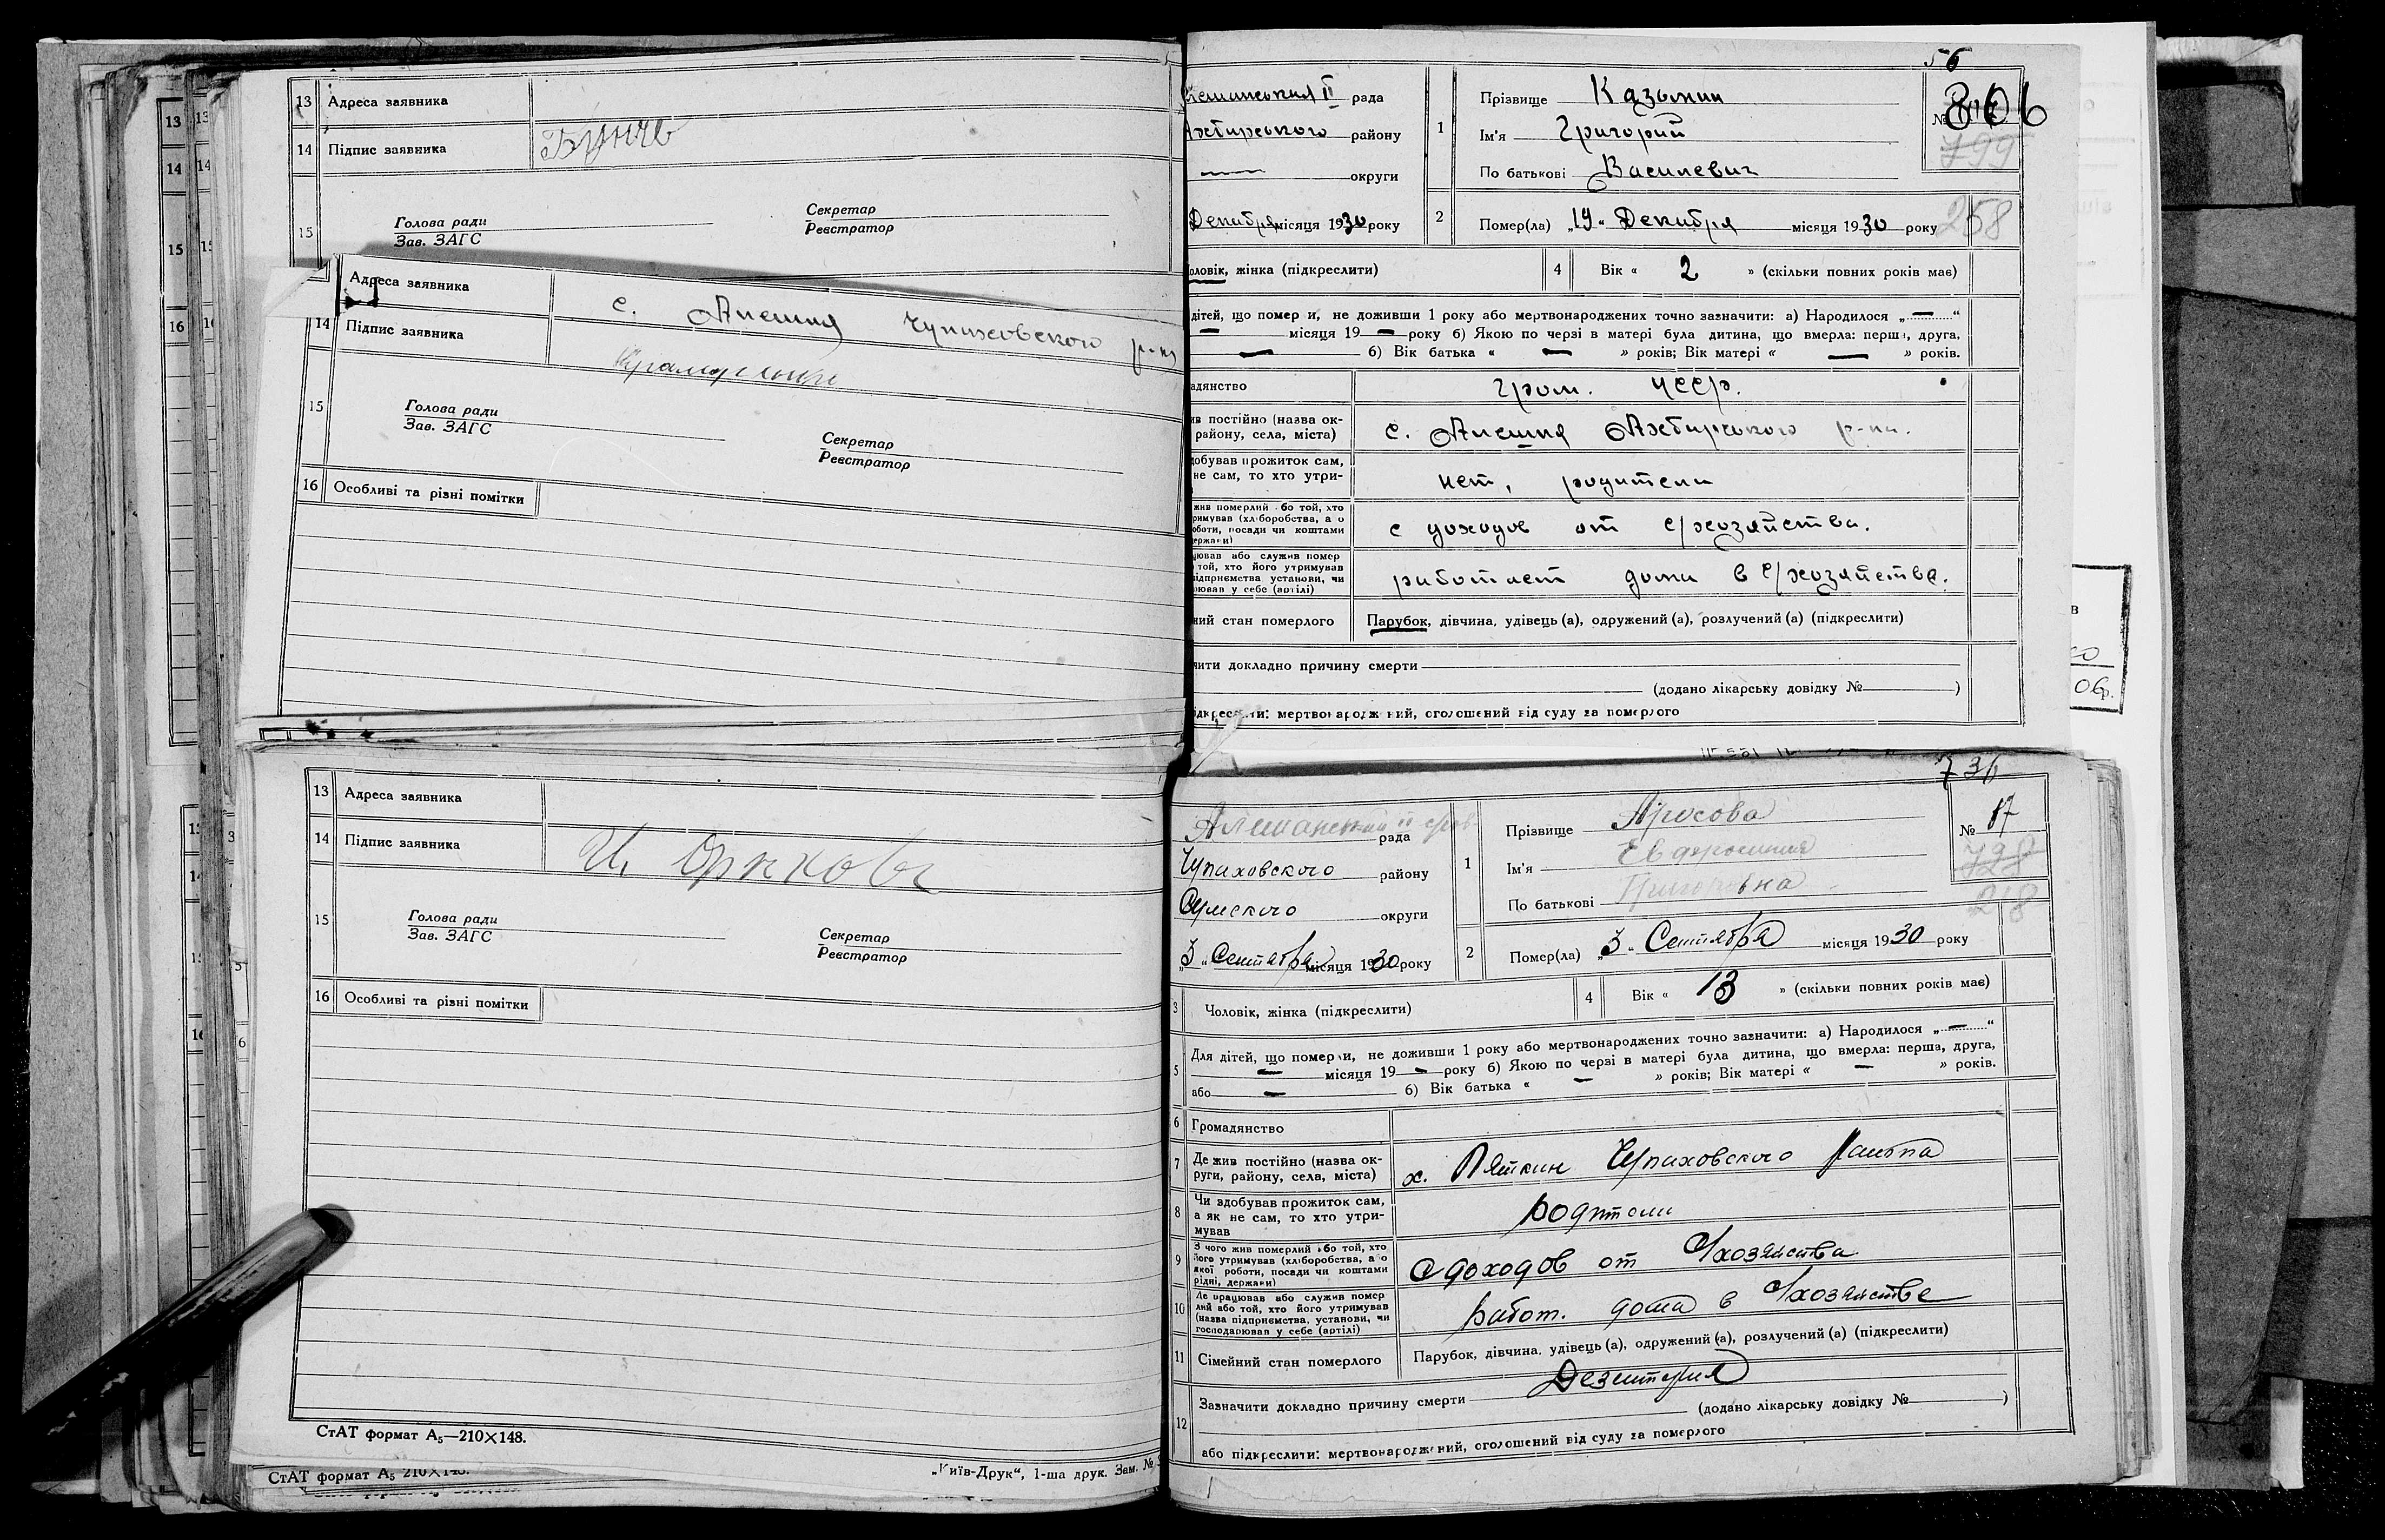 13 Адреса заявника
14 Підпис заявника
15
Голова ради
Зав. ЗАГС
Секретар
Реєстратор
Адреса заявника с. Алешня Чупаховского р-на
14 Підпис заявника
15
Голова ради
Зав. ЗАГС
Секретар
Реєстратор
16 Особливі та різні помітки
13 Адреса заявника
14 Підпис заявника
15
Голова ради
Зав. ЗАГС
Секретар
Реєстратор
16 Особливі та різні помітки
СтАТ формат А5—210×148.
СтАТ формат А5 210×148.
„Київ-Друк“, 1-ша друк. Зам. №
56
рада
Ахтирського району
округи
Декабря місяця 1930 року
1
Прізвище Казьмин
Ім'я Григорий
По батькові Василевич
№ 806
799
258
2 Помер(ла) „19“ Декабря місяця 1930 року
оловік, жінка (підкреслити)
4 Вік « 2 » (скільки повних років має)
дітей, що помер и, не доживши 1 року або мертвонароджених точно зазначити: а) Народилося „—“
— місяця 19 — року б) Якою по черзі в матері була дитина, що вмерла: перша, друга,
— б) Вік батька « — » років; Вік матері « — » років.
адянство гром. УССР.
ив постійно (назва ок-
району, села, міста) с. Алешня Ахтирського р-на.
добував прожиток сам,
не сам, то хто утри- нет, родители
жив померлий або той, хто
римував (хліборобства, а о
оботи, посади чи коштами
ержави) с доходов от с/хозяйства.
ював або служив помер
той, хто його утримував
ідприємства установи, чи
рював у себе (артілі) работает дома в с/хозяйства.
ний стан померлого Парубок, дівчина, удівець (а), одружений (а), розлучений (а) (підкреслити)
чити докладно причину смерти
(додано лікарську довідку № )
ідкреслити: мертвонароджений, оголошений від суду за померлого
736
рада
Чупаховского району
Сумского округи
„3“ Сентября місяця 1930 року
1
Прізвище Аросова
Ім'я Евфросиния
По батькові Григоровна
№ 17
728
218
2 Помер(ла) „3“ Сентября місяця 1930 року
3 Чоловік, жінка (підкреслити)
4 Вік « 13 » (скільки повних років має)
5 Для дітей, що померли, не доживши 1 року або мертвонароджених точно зазначити: а) Народилося „—“
— місяця 19 — року б) Якою по черзі в матері була дитина, що вмерла: перша, друга,
або — б) Вік батька « — » років; Вік матері « — » років.
6 Громадянство
7 Де жив постійно (назва ок-
руги, району, села, міста) х. Пяткин Чупаховского района
8 Чи здобував прожиток сам,
а як не сам, то хто утри-
мував родители
9 З чого жив померлий або той, хто
його утримував (хліборобства, а о
якої роботи, посади чи коштами
рідні, держави) С доходов от с/хозяйства
10 Де працював або служив помер
лий або той, хто його утримував
(назва підприємства, установи, чи
господарював у себе (артілі) работ. дома в с/хозяйстве
11 Сімейний стан померлого Парубок, дівчина, удівець (а), одружений (а), розлучений (а) (підкреслити)
12 Зазначити докладно причину смерти Дезинтерия
(додано лікарську довідку № )
або підкреслити: мертвонароджений, оголошений від суду за померлого